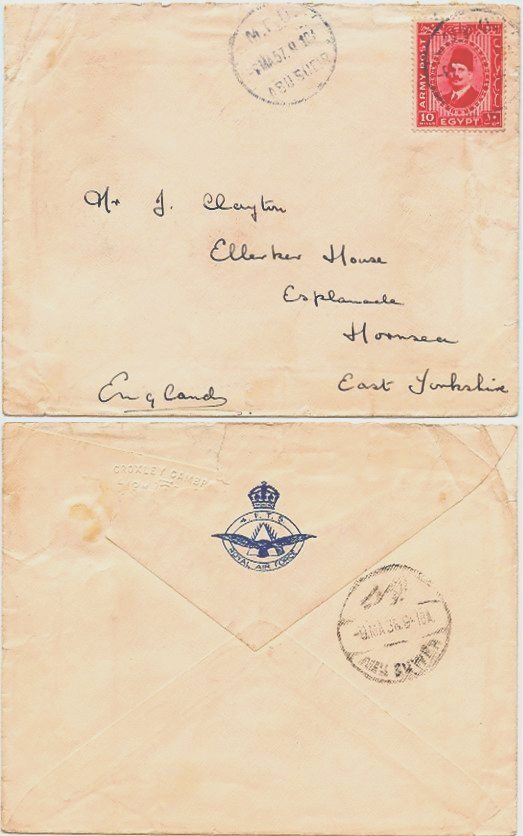 M.P.O.
ABU SUEIR
ARMY POST
10
MILLS
EGYPT
١٠
Mr J. Clayton
Ellerker House
Esplanade
Hornsea
East Yorkshire
England
CROXLEY CAMBR
4. F. T. S
ROYAL AIR FORCE
ABU SUWER